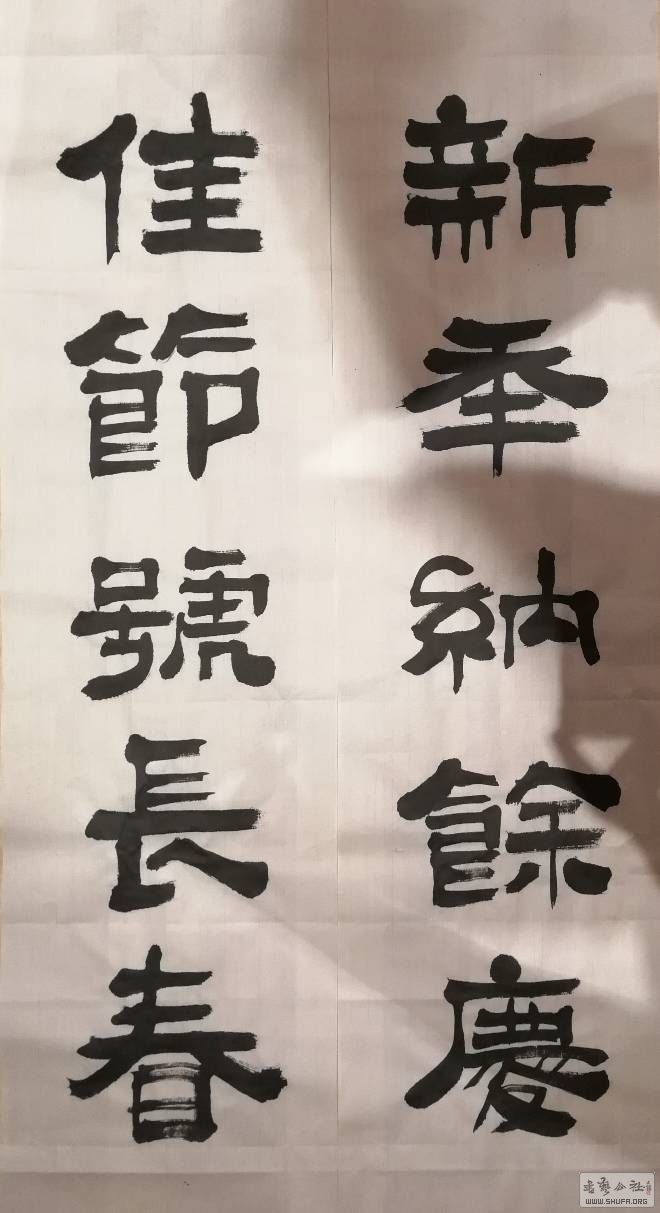 新年納餘慶
佳節號長春
书艺公社
WWW.SHUFA.ORG